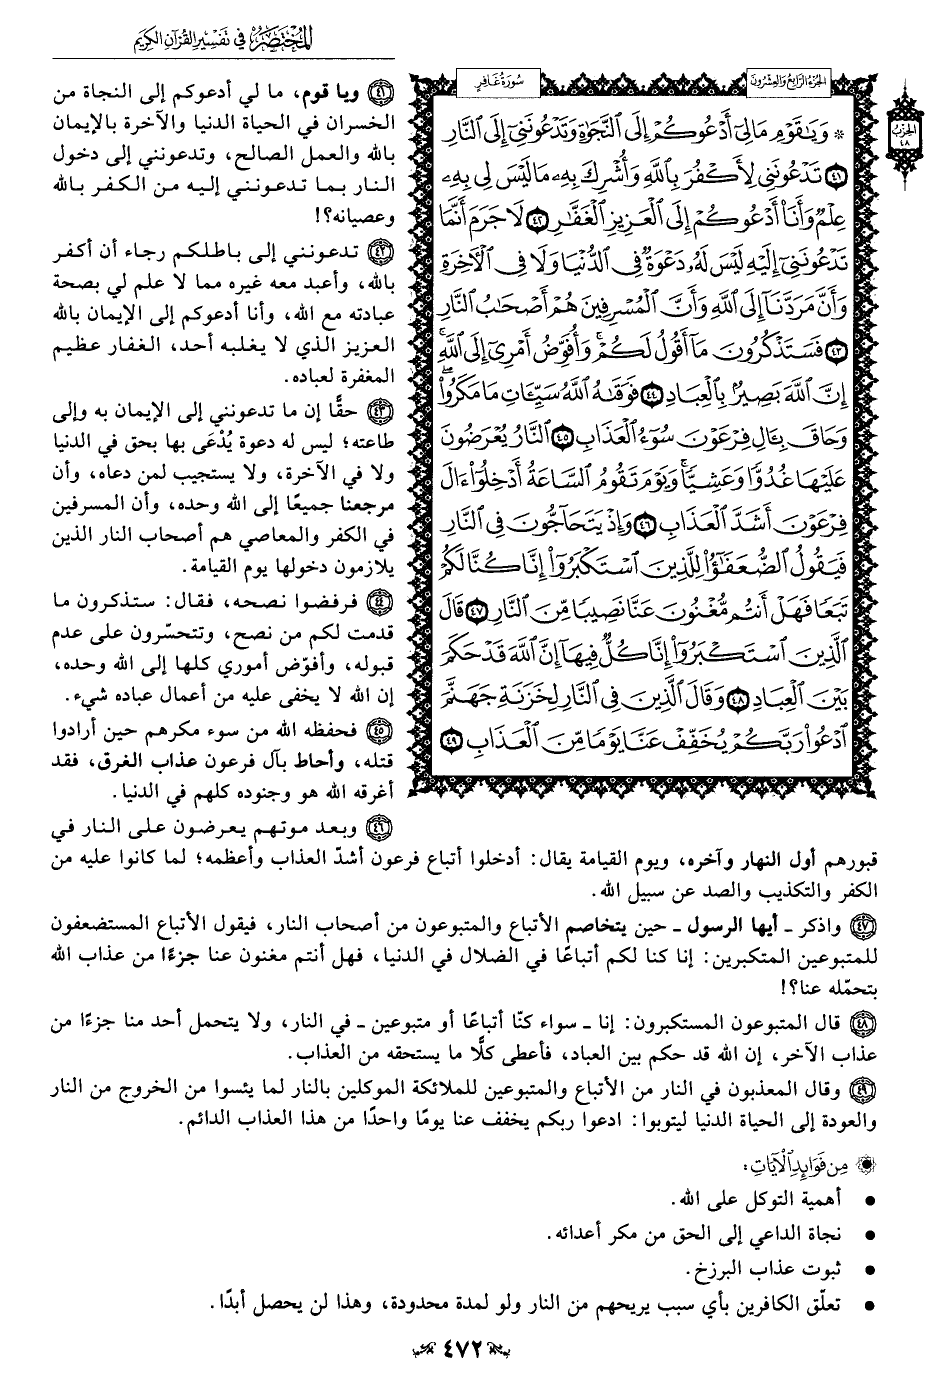 المختصر في تفسير القرآن الكريم
الجزء الرابع والعشرون
سورة غافر
الحزب ٤٨
۞ وَيَٰقَوْمِ مَا لِيٓ أَدْعُوكُمْ إِلَى ٱلنَّجَوٰةِ وَتَدْعُونَنِيٓ إِلَى ٱلنَّارِ
٤١ تَدْعُونَنِي لِأَكْفُرَ بِٱللَّهِ وَأُشْرِكَ بِهِۦ مَا لَيْسَ لِي بِهِۦ
عِلْمٌ وَأَنَا۠ أَدْعُوكُمْ إِلَى ٱلْعَزِيزِ ٱلْغَفَّٰرِ ٤٢ لَا جَرَمَ أَنَّمَا
تَدْعُونَنِيٓ إِلَيْهِ لَيْسَ لَهُۥ دَعْوَةٌ فِي ٱلدُّنْيَا وَلَا فِي ٱلْأٓخِرَةِ
وَأَنَّ مَرَدَّنَآ إِلَى ٱللَّهِ وَأَنَّ ٱلْمُسْرِفِينَ هُمْ أَصْحَٰبُ ٱلنَّارِ
٤٣ فَسَتَذْكُرُونَ مَآ أَقُولُ لَكُمْۚ وَأُفَوِّضُ أَمْرِيٓ إِلَى ٱللَّهِۚ
إِنَّ ٱللَّهَ بَصِيرٌۢ بِٱلْعِبَادِ ٤٤ فَوَقَىٰهُ ٱللَّهُ سَيِّـَٔاتِ مَا مَكَرُوا۟ۖ
وَحَاقَ بِـَٔالِ فِرْعَوْنَ سُوٓءُ ٱلْعَذَابِ ٤٥ ٱلنَّارُ يُعْرَضُونَ
عَلَيْهَا غُدُوًّا وَعَشِيًّاۖ وَيَوْمَ تَقُومُ ٱلسَّاعَةُ أَدْخِلُوٓا۟ ءَالَ
فِرْعَوْنَ أَشَدَّ ٱلْعَذَابِ ٤٦ وَإِذْ يَتَحَآجُّونَ فِي ٱلنَّارِ
فَيَقُولُ ٱلضُّعَفَٰٓؤُا۟ لِلَّذِينَ ٱسْتَكْبَرُوٓا۟ إِنَّا كُنَّا لَكُمْ
تَبَعًا فَهَلْ أَنتُم مُّغْنُونَ عَنَّا نَصِيبًا مِّنَ ٱلنَّارِ ٤٧ قَالَ
ٱلَّذِينَ ٱسْتَكْبَرُوٓا۟ إِنَّا كُلٌّ فِيهَآ إِنَّ ٱللَّهَ قَدْ حَكَمَ
بَيْنَ ٱلْعِبَادِ ٤٨ وَقَالَ ٱلَّذِينَ فِي ٱلنَّارِ لِخَزَنَةِ جَهَنَّمَ
ٱدْعُوا۟ رَبَّكُمْ يُخَفِّفْ عَنَّا يَوْمًا مِّنَ ٱلْعَذَابِ ٤٩
٤١ ويا قوم، ما لي أدعوكم إلى النجاة من
الخسران في الحياة الدنيا والآخرة بالإيمان
بالله والعمل الصالح، وتدعونني إلى دخول
النار بما تدعونني إليه من الكفر بالله
وعصيانه؟!
٤٢ تدعونني إلى باطلكم رجاء أن أكفر
بالله، وأعبد معه غيره مما لا علم لي بصحة
عبادته مع الله، وأنا أدعوكم إلى الإيمان بالله
العزيز الذي لا يغلبه أحد، الغفار عظيم
المغفرة لعباده.
٤٣ حقًّا إن ما تدعونني إلى الإيمان به وإلى
طاعته؛ ليس له دعوة يُدْعَى بها بحق في الدنيا
ولا في الآخرة، ولا يستجيب لمن دعاه، وأن
مرجعنا جميعًا إلى الله وحده، وأن المسرفين
في الكفر والمعاصي هم أصحاب النار الذين
يلازمون دخولها يوم القيامة.
٤٤ فرفضوا نصحه، فقال: ستذكرون ما
قدمت لكم من نصح، وتتحسّرون على عدم
قبوله، وأفوّض أموري كلها إلى الله وحده،
إن الله لا يخفى عليه من أعمال عباده شيء.
٤٥ فحفظه الله من سوء مكرهم حين أرادوا
قتله، وأحاط بآل فرعون عذاب الغرق، فقد
أغرقه الله هو وجنوده كلهم في الدنيا.
٤٦ وبعد موتهم يعرضون على النار في
قبورهم أول النهار وآخره، ويوم القيامة يقال: أدخلوا أتباع فرعون أشدّ العذاب وأعظمه؛ لما كانوا عليه من
الكفر والتكذيب والصد عن سبيل الله.
٤٧ واذكر ـ أيها الرسول ـ حين يتخاصم الأتباع والمتبوعون من أصحاب النار، فيقول الأتباع المستضعفون
للمتبوعين المتكبرين: إنا كنا لكم أتباعًا في الضلال في الدنيا، فهل أنتم مغنون عنا جزءًا من عذاب الله
بتحمّله عنا؟!
٤٨ قال المتبوعون المستكبرون: إنا ـ سواء كنّا أتباعًا أو متبوعين ـ في النار، ولا يتحمل أحد منا جزءًا من
عذاب الآخر، إن الله قد حكم بين العباد، فأعطى كلًّا ما يستحقه من العذاب.
٤٩ وقال المعذبون في النار من الأتباع والمتبوعين للملائكة الموكلين بالنار لما يئسوا من الخروج من النار
والعودة إلى الحياة الدنيا ليتوبوا: ادعوا ربكم يخفف عنا يومًا واحدًا من هذا العذاب الدائم.
من فوائد الآيات:
• أهمية التوكل على الله.
• نجاة الداعي إلى الحق من مكر أعدائه.
• ثبوت عذاب البرزخ.
• تعلّق الكافرين بأي سبب يريحهم من النار ولو لمدة محدودة، وهذا لن يحصل أبدًا.
٤٧٢